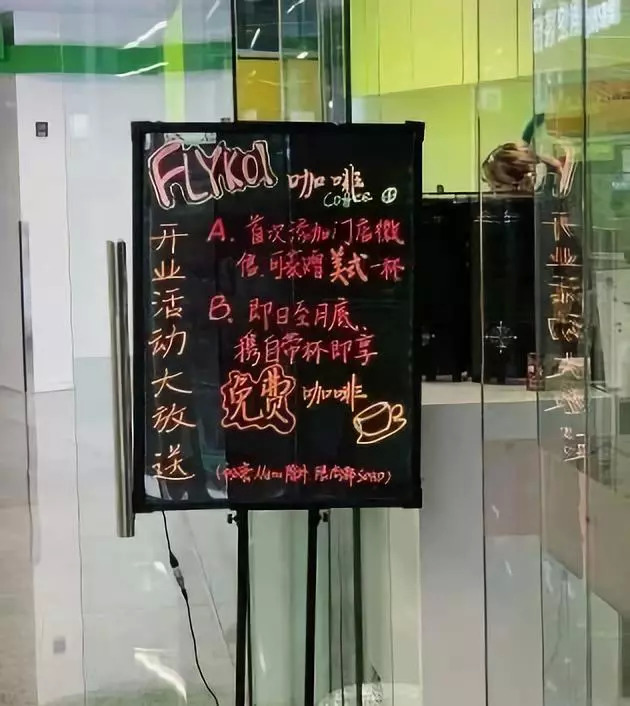 FLYKOI 咖啡
Coffee
开业活动大放送
A. 首次添加门店微
信,可获赠美式一杯
B. 即日至月底,
携自带杯即享
免费咖啡